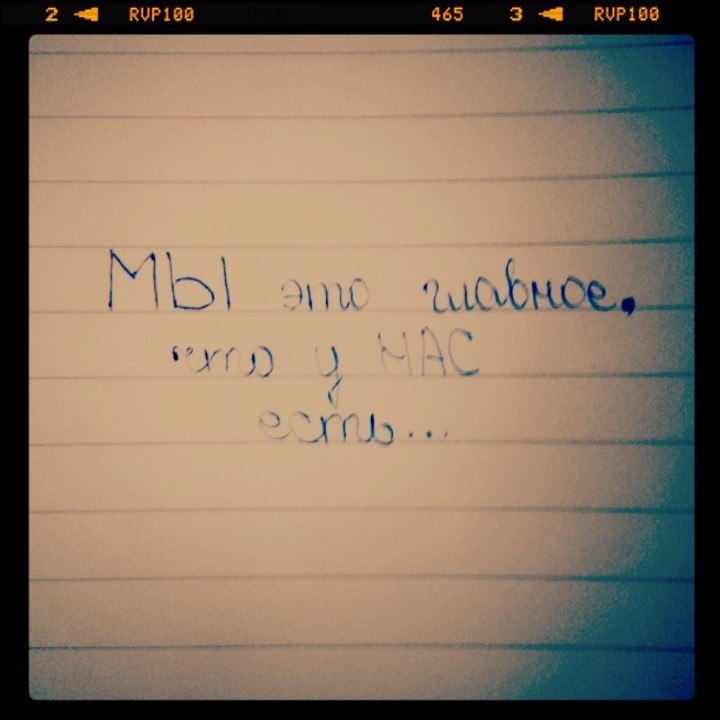 2 RVP100 465 3 RVP100
МЫ это главное,
что у НАС
есть...